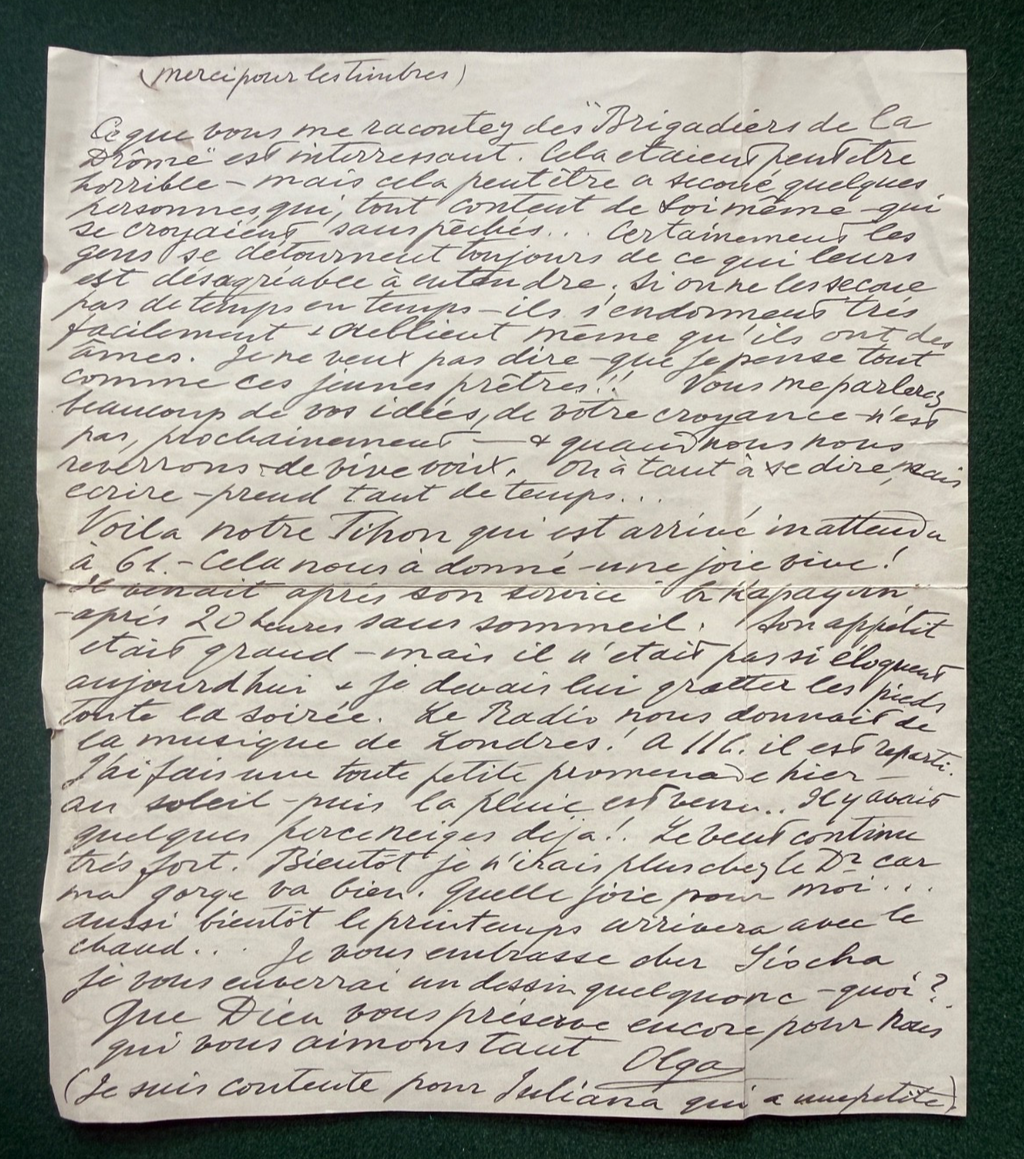 (merci pour les timbres)
Ce que vous me racontez des "Brigadiers de la
Drôme" est interressant. Cela etaient peutetre
horrible – mais cela peutêtre a secoué quelques
personnes qui, tout content de soi même – qui
se croyaient sans péchés... Certainement les
gens se détournent toujours de ce qui leurs
est désagréable à entendre. Si on ne les secoue
pas de temps en temps – ils s'endorment très
facilement & oublient même qu'ils ont des
âmes. Je ne veux pas dire – que je pense tout
comme ces jeunes prêtres!! Vous me parlerez
beaucoup de vos idées, de vôtre croyance – n'est
pas, prochainement – & quand nous nous
reverrons – de vive voix. On à tant à se dire, mais
ecrire – prend tant de temps...
Voila notre Tihon qui est arrivé inattendu
à 6h. – Cela nous à donné – une joie vive!
Il venait après son service
– après 20 heures sans sommeil. Son appétit
etait grand – mais il n'etait pas si éloquent
aujourdhui & je devais lui gratter les pieds
toute la soirée. Le Radio nous donnait de
la musique de Londres! A 11h. il est reparti.
J'ai fais une toute petite promenade hier –
au soleil – puis la pluie est venu.. Il y avait
quelques perceneiges déja! Le vent continu
très fort. Bientôt je n'irais plus chez le Dr car
ma gorge va bien. Quelle joie pour moi...
aussi bientôt le printemps arrivera avec le
chaud... Je vous embrasse cher Liocha
je vous enverrai un dessin quelquonc – quoi?
Que Dieu vous préserve encore pour nous
qui vous aimons tant Olga
(Je suis contente pour Juliana qui a une petite).